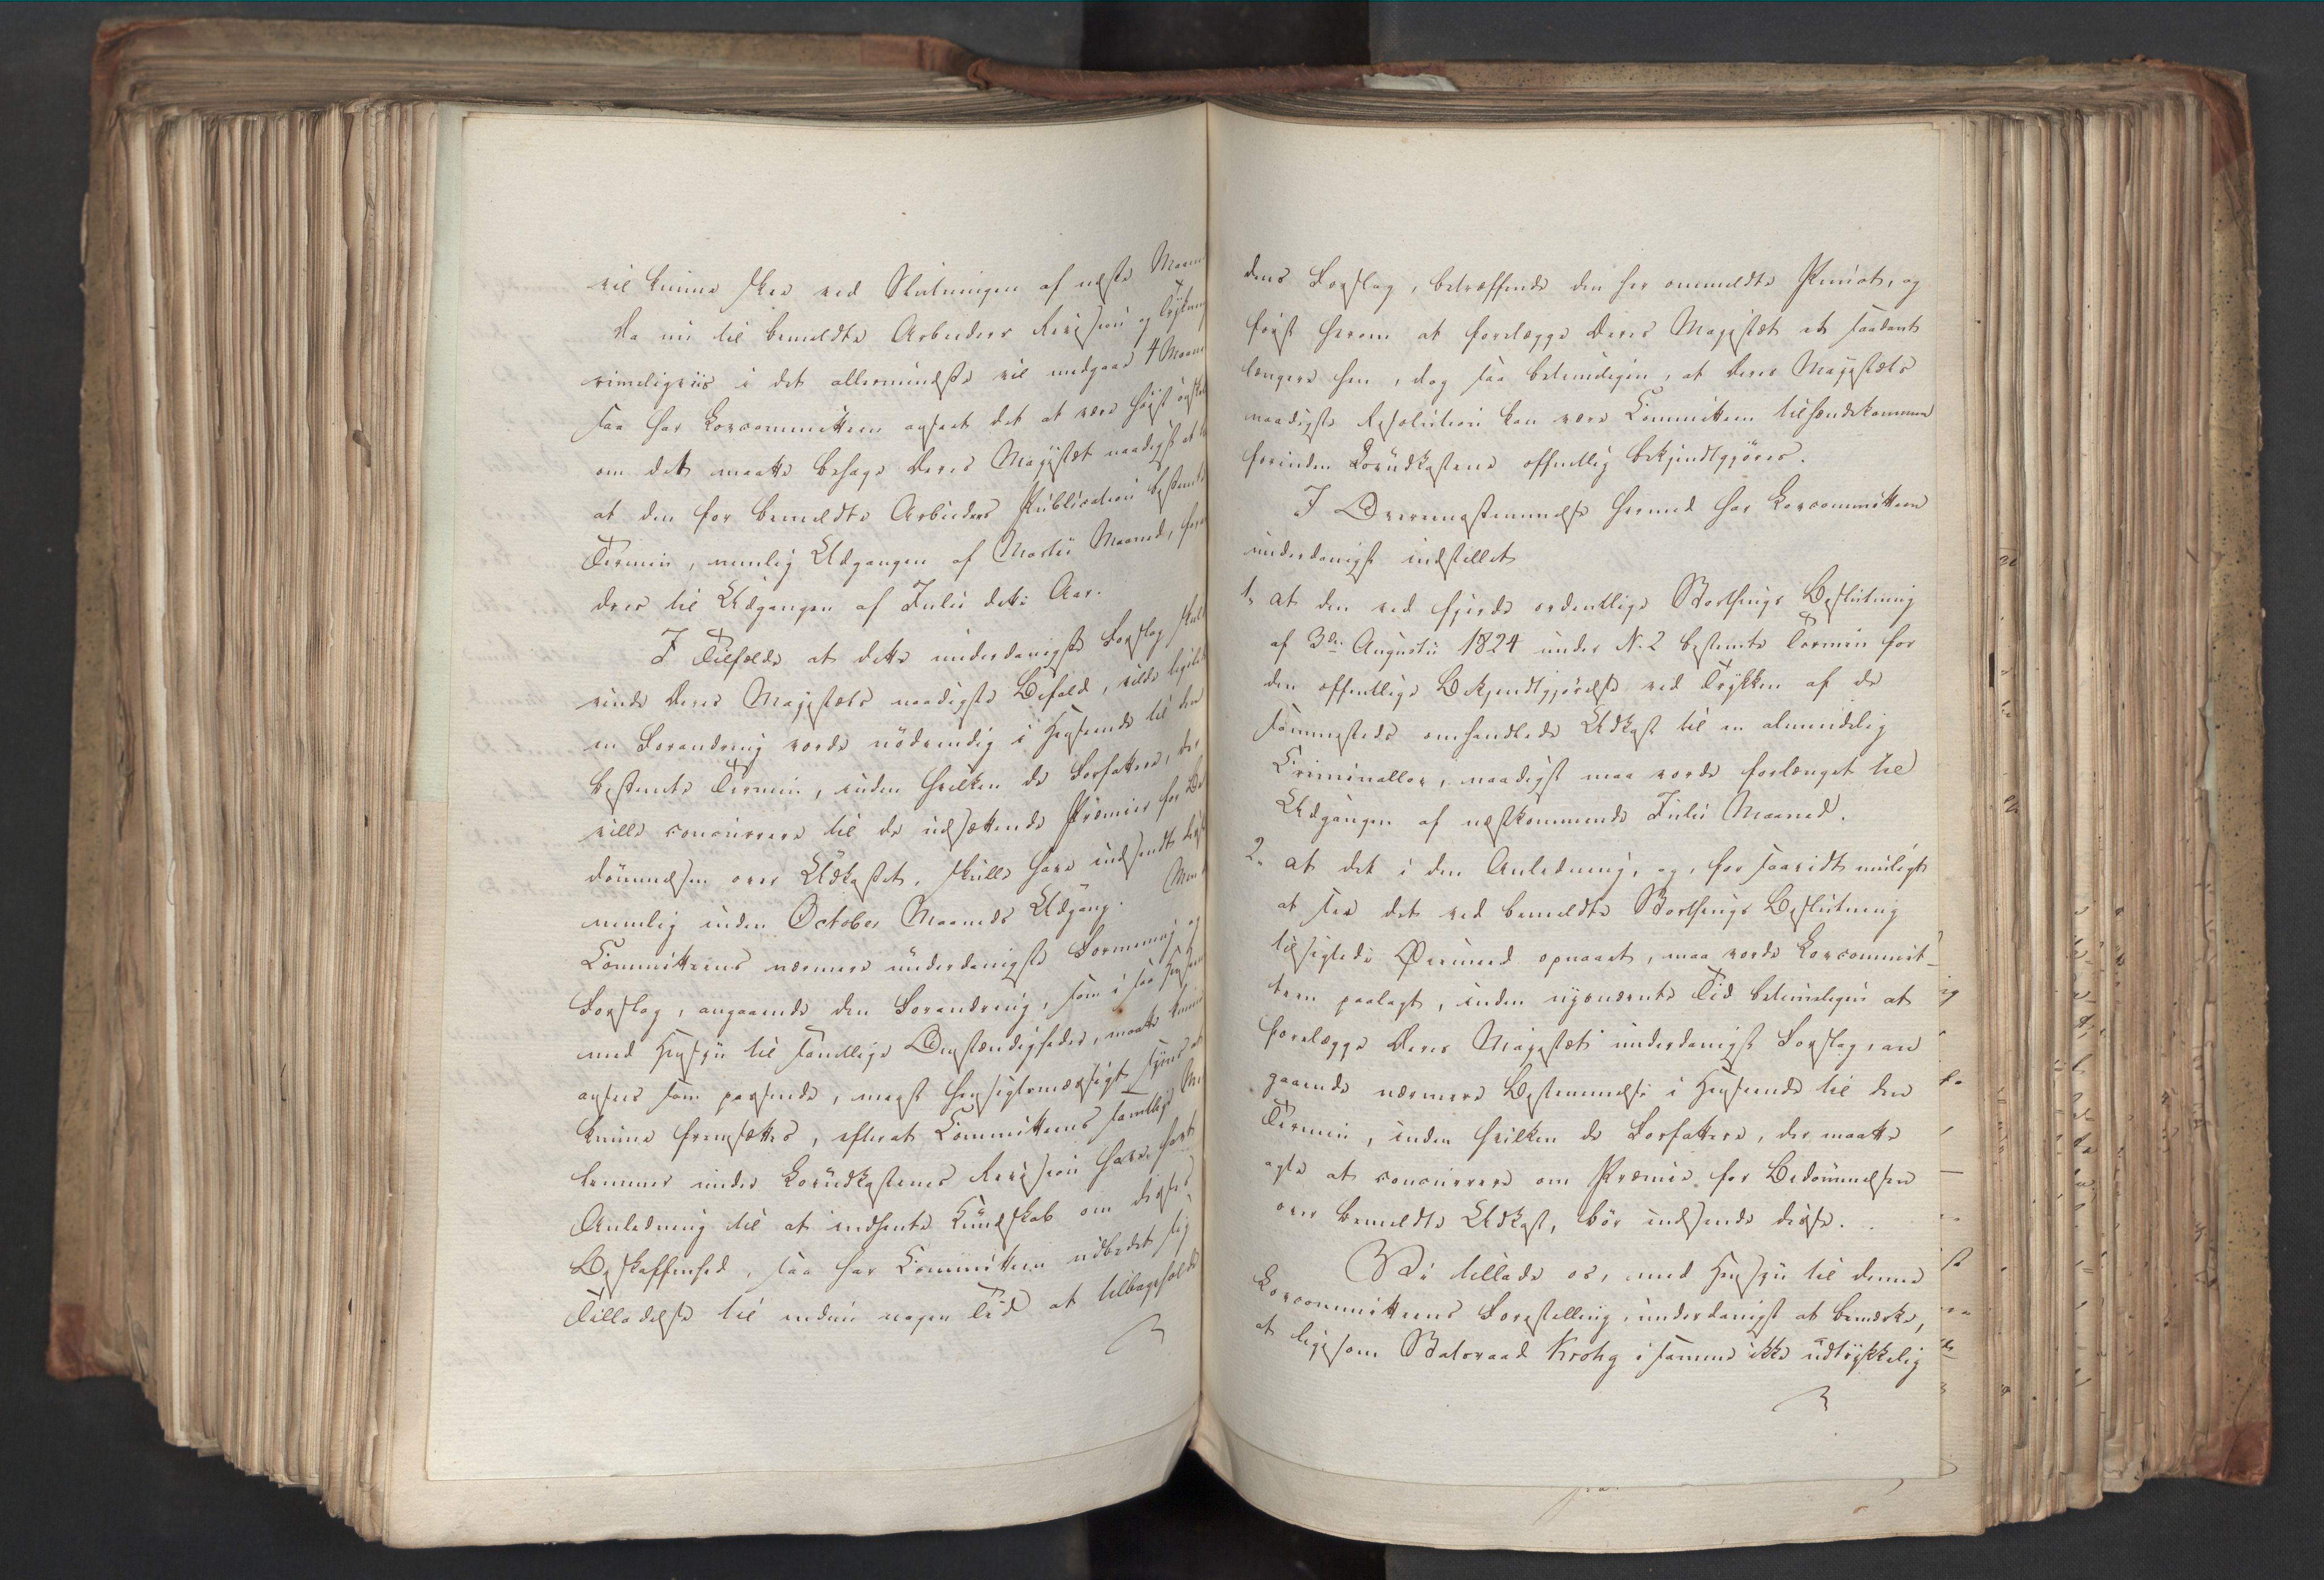 vil kunne skee ved Slutningen af næste Maan
Da nu til bemeldte Arbeiders Revision og Trykning
rimeligviis i det allermindste vil medgaae 4 Maan
saa har Lovcommitteen anseet det at være høist ønske
om det maatte behage Deres Majestæt naadigst at
at den for bemeldte Arbeiders Publication bestemte
Termin, nemlig Udgangen af Martii Maaned, for
dres til Udgangen af Julii dette Aar.
I Tilfælde at dette underdanigste Forslag skul
vinde Deres Majestæts naadigste Bifald, vilde ligele
en Forandring vorde nödvendig i Henseende til den
bestemte Termin, inden hvilken de Forfattere, der
ville concurrere til de udsættende Præmier for Be
dömmelsen over Udkastet, skulle have indsendt disse
nemlig inden October Maaneds Udgang. Men
Committeens nærmere underdanigste Formening og
Forslag, angaaende den Forandring, som i saa Hense
med Hensyn til samtlige Omstændigheder, maatte kunne
ansees som passende, meest hensigtsmæssigt synes at
kunne fremsættes, efterat Committeens samtlige Med
lemmer under Lovudkastenes Revision have havt
Anledning til at indhente Kundskab om disses
Beskaffenhed, saa har Committeen udbedet sig
Tilladelse til endnu nogen Tid at tilbageholde
dens Forslag, betræffende den her ommeldte Punct, og
først herom at forelægge Deres Majestæt et saadant
længere hen, dog saa betimeligen, at Deres Majestæts
naadigste Resolution kan være Committeen tilhændekommen
forinden Lovudkastene offentlig bekjendtgjöres.
I Overeensstemmelse hermed har Lovcommitteen
underdanigst indstillet
1, at den ved fjerde ordentlige Storthings Beslutning
af 3die Augustii 1824 under N. 2 bestemte Termin for
den offentlige Bekjendtgjörelse ved Trykken af de
sammesteds omhandlede Udkast til en almindelig
Criminallov, naadigst maa vorde forlænget til
Udgangen af næstkommende Julii Maaned.
2, at det i den Anledning, og, for saavidt muligt
at see det ved bemeldte Storthings Beslutning
tilsigtede Øiemeed opnaaet, maa vorde Lovcommit-
teen paalagt, inden nysnævnte Tid betimeligen at
forelægge Deres Majestæt underdanigst Forslag, an
gaaende nærmere Bestemmelse i Henseende til den
Termin, inden hvilken de Forfattere, der maatte
agte at concurrere om Præmie for Bedömmelsen
over bemeldte Udkast, bör indsende disse.
Vi tillade os, med Hensyn til denne
Lovcommitteens Forestilling, underdanigst at bemærke,
at ligesom Statsraad Krohg i samme ikke udtrykkelig